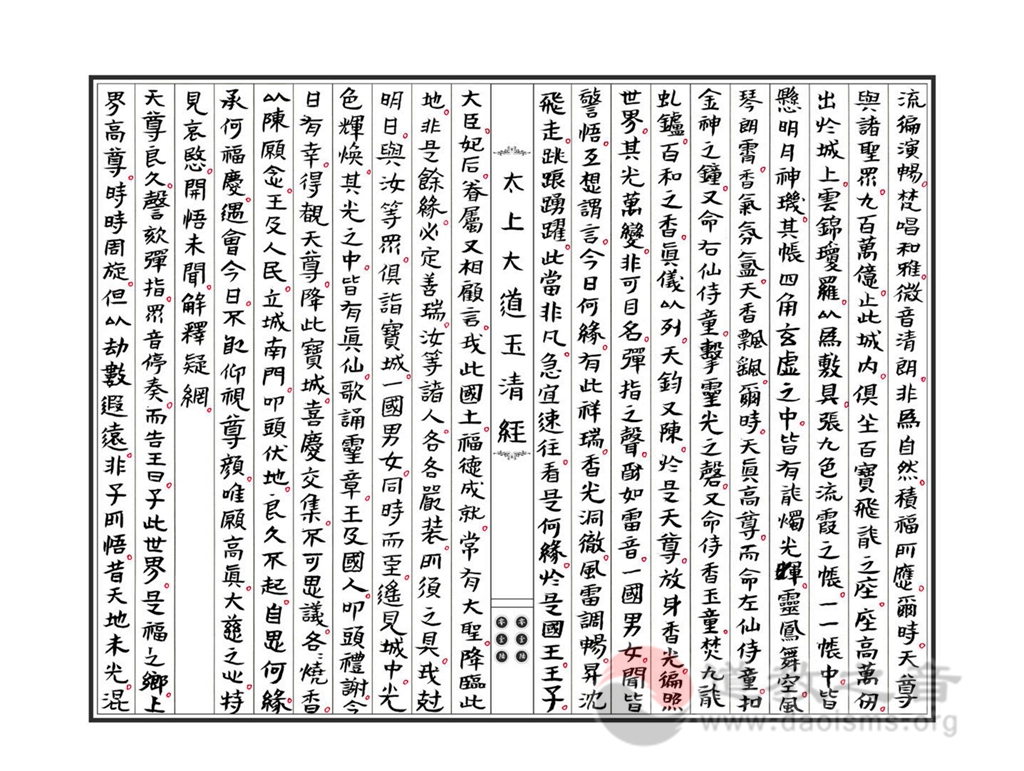 流徧演暢梵唱和雅微音清朗非爲自然積福所應爾時天尊
與諸聖眾九百萬億止此城内俱坐百寶飛龍之座座高萬仞
出於城上雲錦瓊羅以爲敷具張九色流霞之帳一一帳中皆
懸明月神璣其帳四角玄虛之中皆有龍燭光輝靈鳳舞空風
琴朗霄香氣氛氳天香飄颻爾時天真高尊而命左仙侍童扣
金神之鐘又命右仙侍童擊靈光之磬又命侍香玉童焚九龍
虬鑪百和之香真儀以列天鈞又陳於是天尊放身香光徧照
世界其光萬變非可目名彈指之聲響如雷音一國男女聞皆
警悟互想謂言今日何緣有此祥瑞香光洞徹風雷調暢昇沈
飛走跳踉踴躍此當非凡急宜速往看是何緣於是國王王子
太上大道玉清經
大臣妃后眷屬又相顧言我此國土福德成就常有大聖降臨此
地非是餘緣必定善瑞汝等諸人各各嚴裝所須之具我尅
明日與汝等眾俱詣寶城一國男女同時而至遙見城中光
色輝煥其光之中皆有真仙歌誦靈章王及國人叩頭禮謝今
日有幸得覩天尊降此寶城喜慶交集不可思議各燒香
以陳願念王及人民立城南門叩頭伏地良久不起自思何緣
承何福慶遇會今日不敢仰視尊顏唯願高真大慈之心特
見哀愍開悟未聞解釋疑網
天尊良久謦欬彈指眾音停奏而告王曰子此世界是福之鄉上
界高尊時時周旋但以劫數遐遠非子所悟昔天地未光混
道教之音
www.daoisms.org